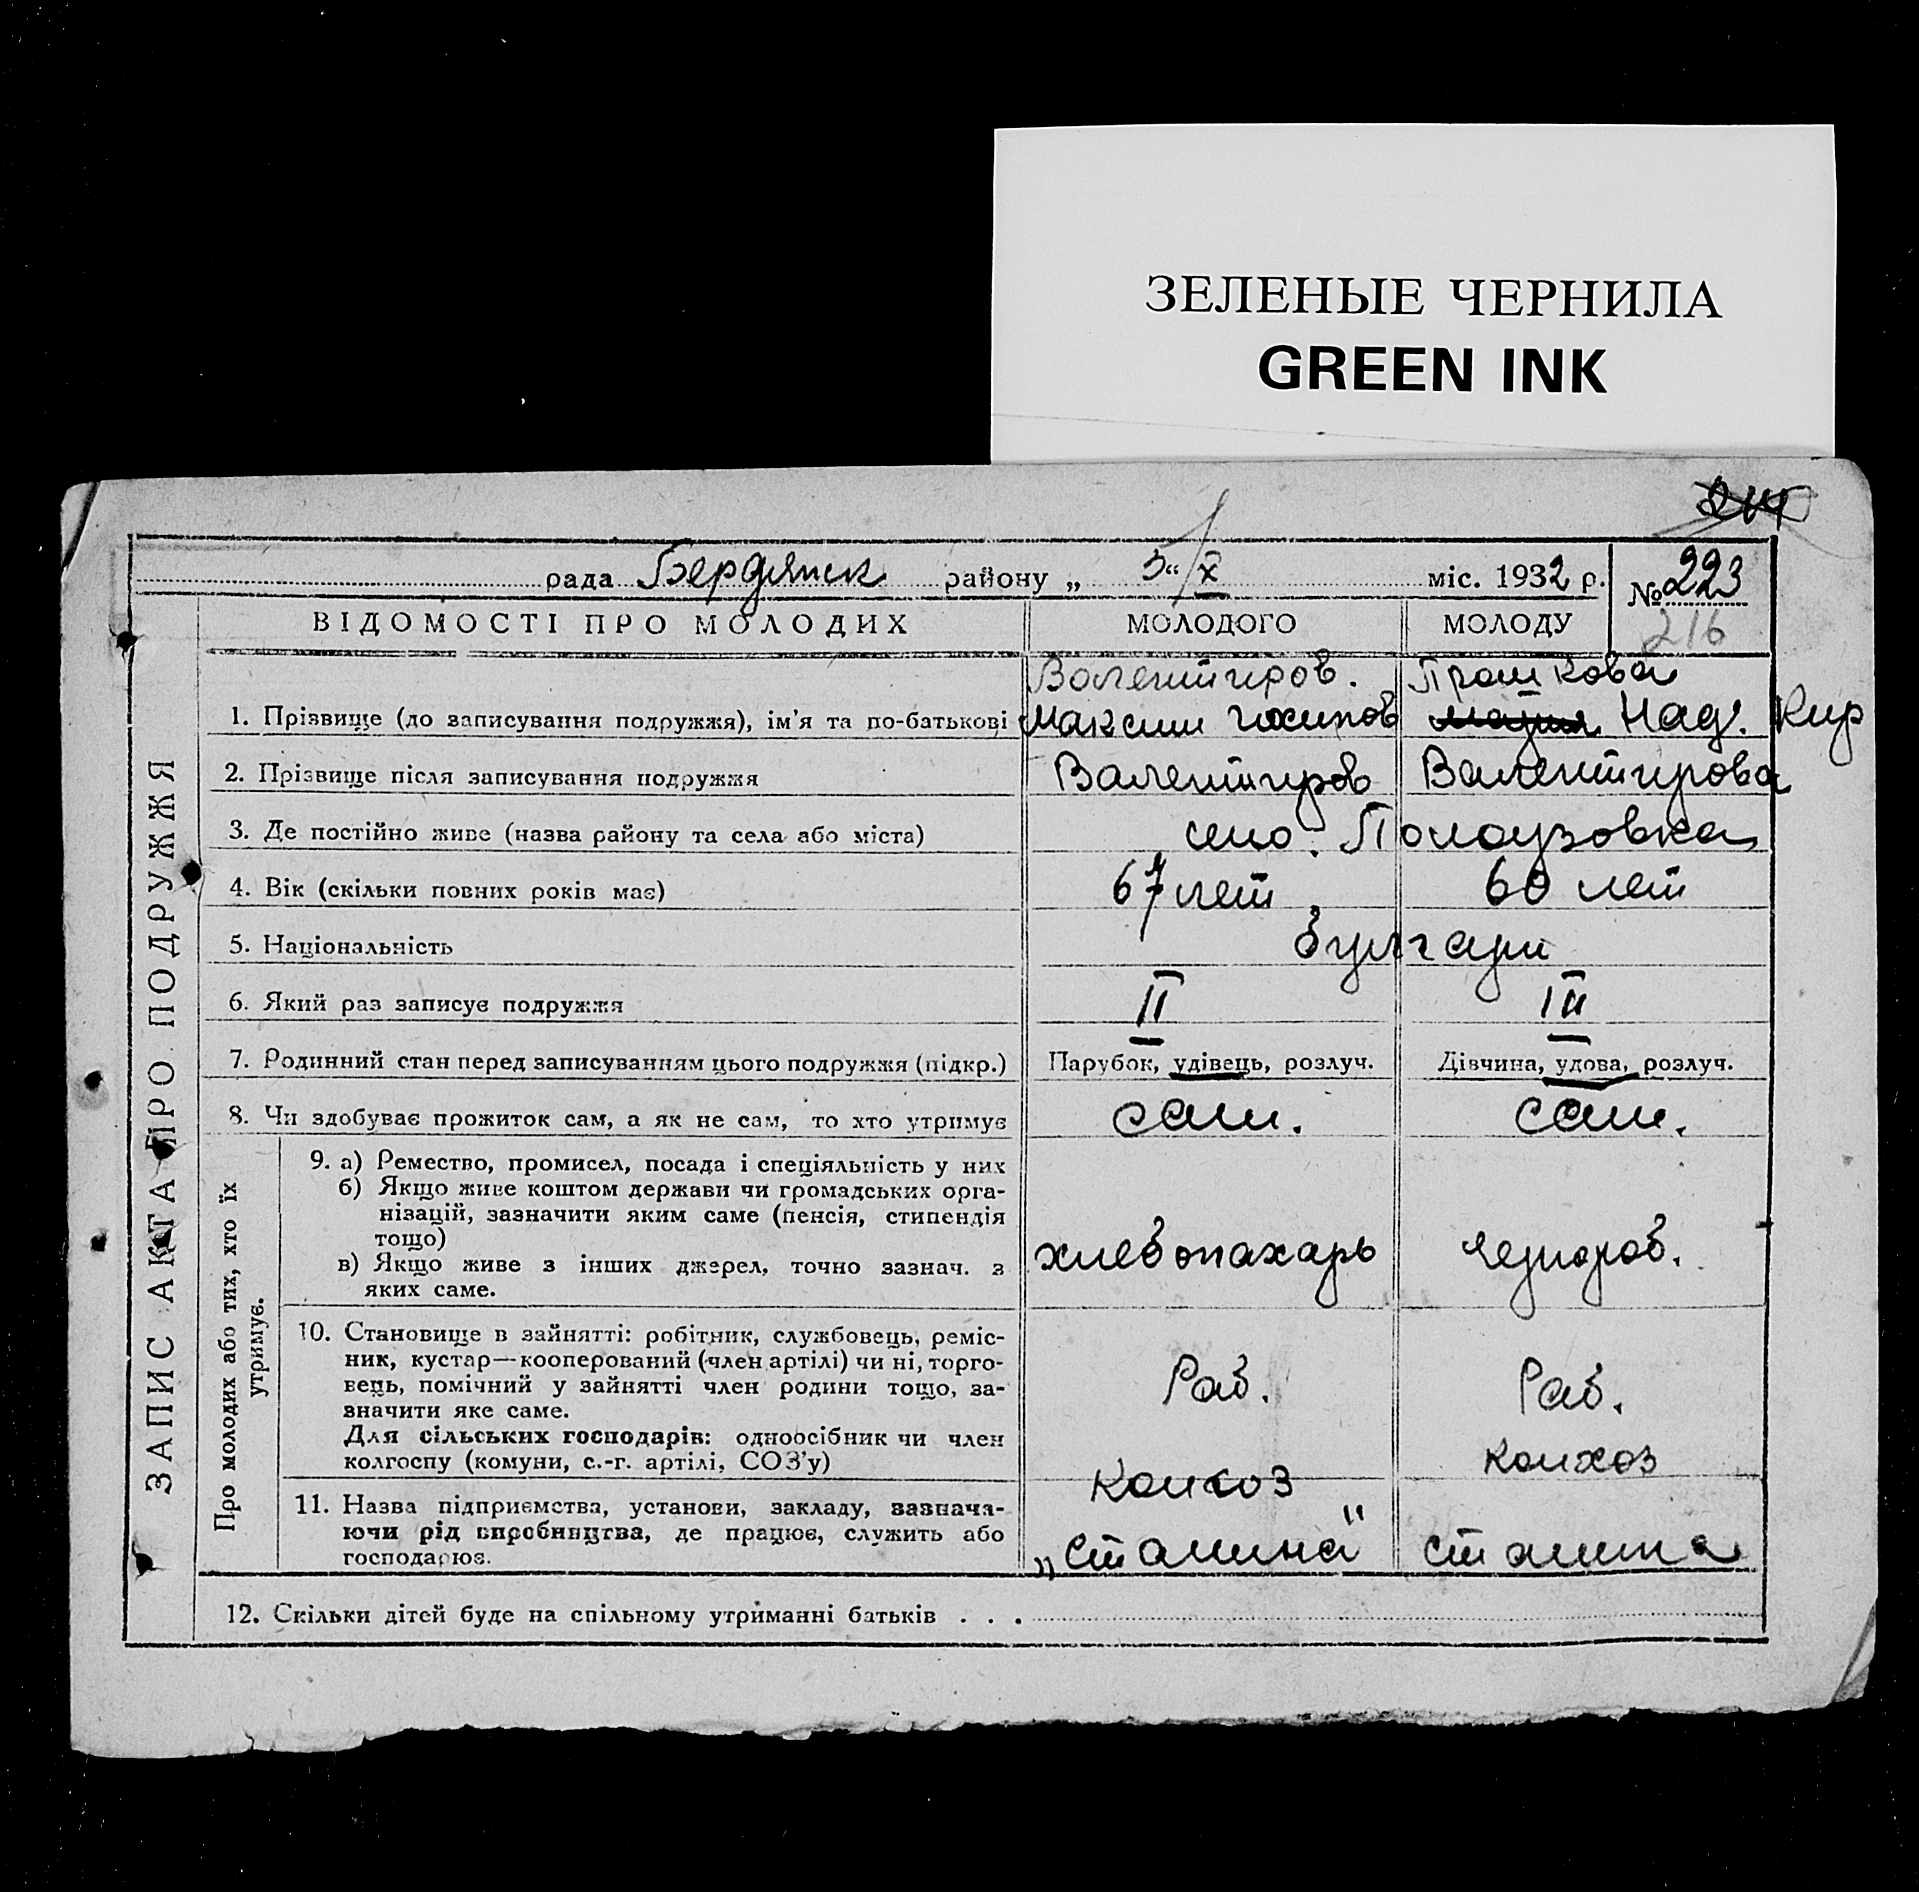 ЗЕЛЕНЫЕ ЧЕРНИЛА
GREEN INK
рада Бердянск району „ 5“/X міс. 1932 р. № 223
216
ВІДОМОСТІ ПРО МОЛОДИХ МОЛОДОГО МОЛОДУ
Валентиров. Прашкова
1. Прізвище (до записування подружжя), ім’я та по-батькові Максим Над. Кир
2. Прізвище після записування подружжя Валентиров Валентирова
3. Де постійно живе (назва району та села або міста) село. Полоузовка
4. Вік (скільки повних років має) 67 лет 60 лет
5. Національність булгари
6. Який раз записує подружжя II III
7. Родинний стан перед записуванням цього подружжя (підкр.) Парубок, удівець, розлуч. Дівчина, удова, розлуч.
8. Чи здобуває прожиток сам, а як не сам, то хто утримує сам. сам.
ЗАПИС АКТА ПРО ПОДРУЖЖЯ
Про молодих або тих, хто їх
утримує.
9. а) Ремество, промисел, посада і спеціяльність у них
б) Якщо живе коштом держави чи громадських орга-
нізацій, зазначити яким саме (пенсія, стипендія
тощо)
в) Якщо живе з інших джерел, точно зазнач. з
яких саме.
хлебопахарь чернораб.
10. Становище в зайнятті: робітник, службовець, реміс-
ник, кустар—кооперований (член артілі) чи ні, торго-
вець, помічний у зайнятті член родини тощо, за-
значити яке саме.
Для сільських господарів: одноосібник чи член
колгоспу (комуни, с.-г. артілі, СОЗ’у)
Раб. Раб.
11. Назва підприємства, установи, закладу, зазнача-
ючи рід виробництва, де працює, служить або
господарює.
колхоз колхоз
„Сталина" Сталина
12. Скільки дітей буде на спільному утриманні батьків . . .